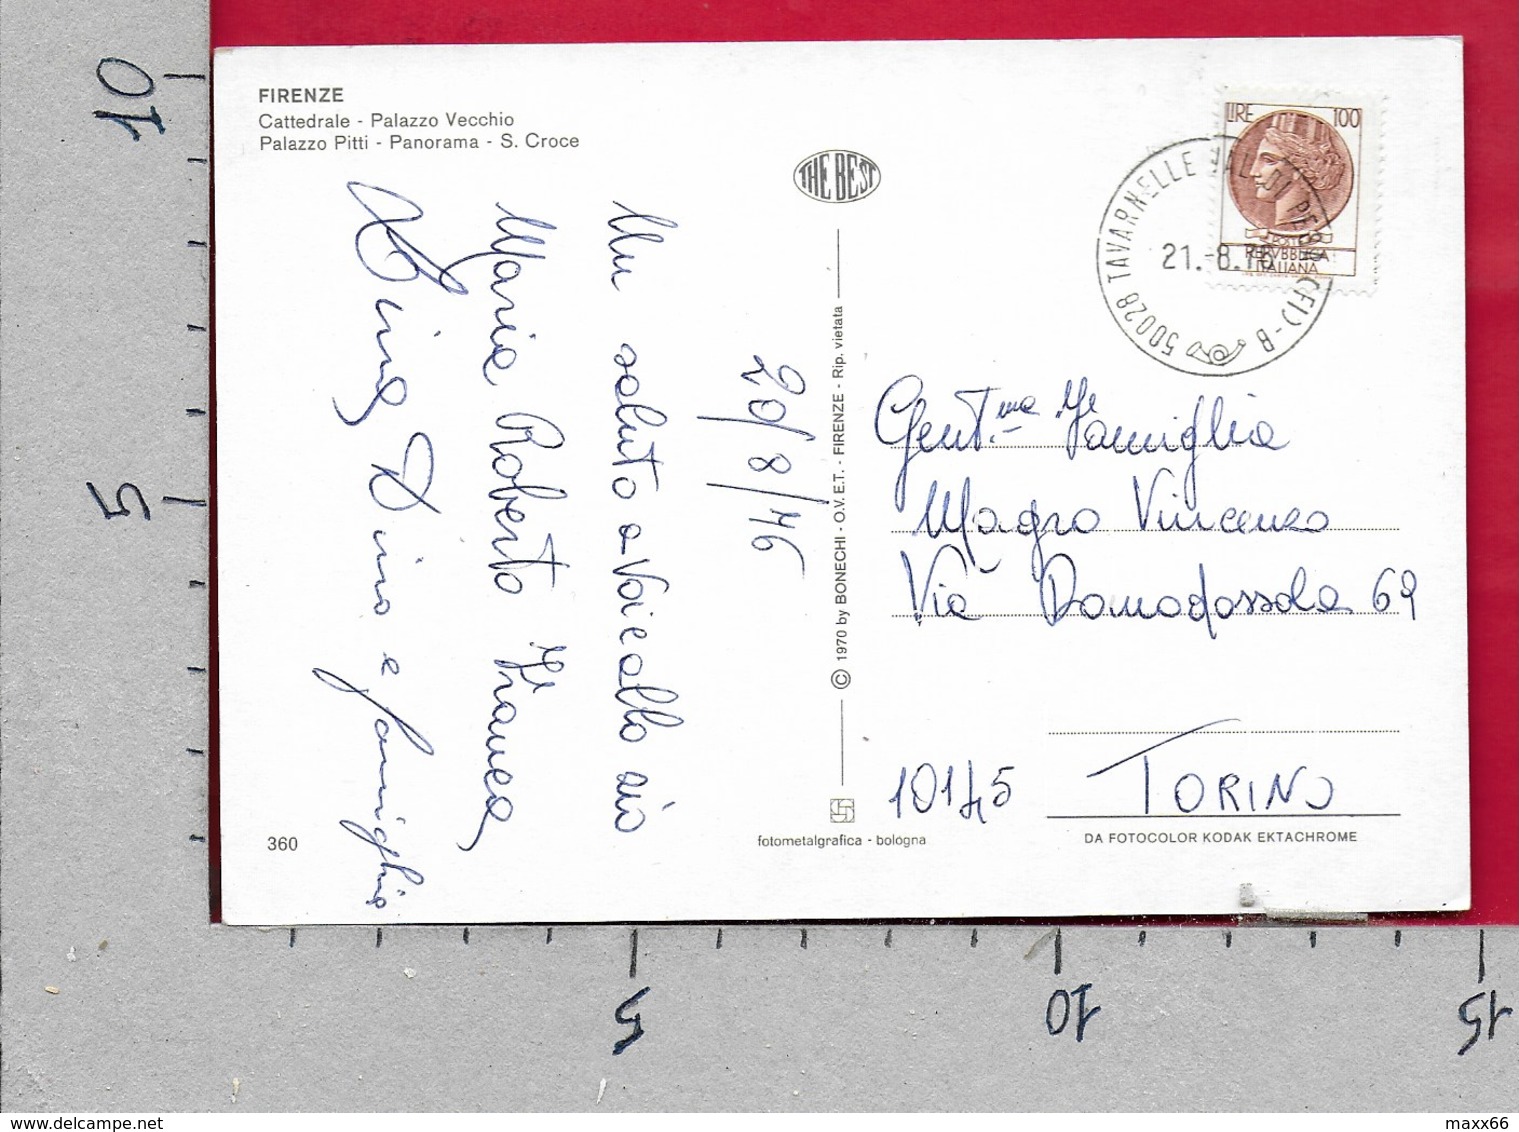 FIRENZE
Cattedrale - Palazzo Vecchio
Palazzo Pitti - Panorama - S. Croce
THE BEST
LIRE 100
POSTE
REPVBBLICA
ITALIANA
50028 TAVARNELLE VAL DI PESA (FI) - B
21.-8.76
20/8/76
Un saluto a voi e allo zio
Maria Roberto Franca
Dino e famiglia
Gent.ma Famiglia
Magro Vincenzo
Via Domodossola 69
10145 TORINO
© 1970 by BONECHI - O.V.E.T. - FIRENZE - Rip. vietata
360
fotometalgrafica - bologna
DA FOTOCOLOR KODAK EKTACHROME
10
5
5
10
15
www.delcampe.net
maxx66